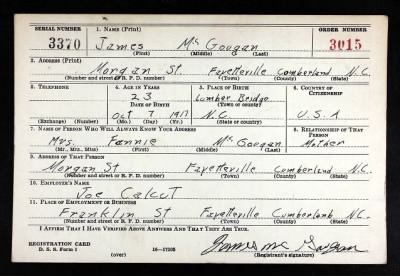 SERIAL NUMBER 1. NAME (Print) ORDER NUMBER
3370 James McGougan 3015
(First) (Middle) (Last)
2. ADDRESS (Print)
Morgan St. Fayetteville Cumberland N.C.
(Number and street or R. F. D. number) (Town) (County) (State)
3. TELEPHONE 4. AGE IN YEARS 5. PLACE OF BIRTH 6. COUNTRY OF CITIZENSHIP
23 Lumber Bridge
DATE OF BIRTH (Town or county)
Oct 7 1917 N.C. U.S.A
(Exchange) (Number) (Mo.) (Day) (Yr.) (State or country)
7. NAME OF PERSON WHO WILL ALWAYS KNOW YOUR ADDRESS 8. RELATIONSHIP OF THAT PERSON
Mrs. Fannie McGougan Mother
(Mr., Mrs., Miss) (First) (Middle) (Last)
9. ADDRESS OF THAT PERSON
Morgan St Fayetteville Cumberland N.C.
(Number and street or R. F. D. number) (Town) (County) (State)
10. EMPLOYER'S NAME
Joe Calcut
11. PLACE OF EMPLOYMENT OR BUSINESS
Franklin St Fayetteville Cumberland N.C.
(Number and street or R. F. D. number) (Town) (County) (State)
I AFFIRM THAT I HAVE VERIFIED ABOVE ANSWERS AND THAT THEY ARE TRUE.
REGISTRATION CARD
D. S. S. Form 1 16—17105 James Mc Gougan
(over) (Registrant's signature)